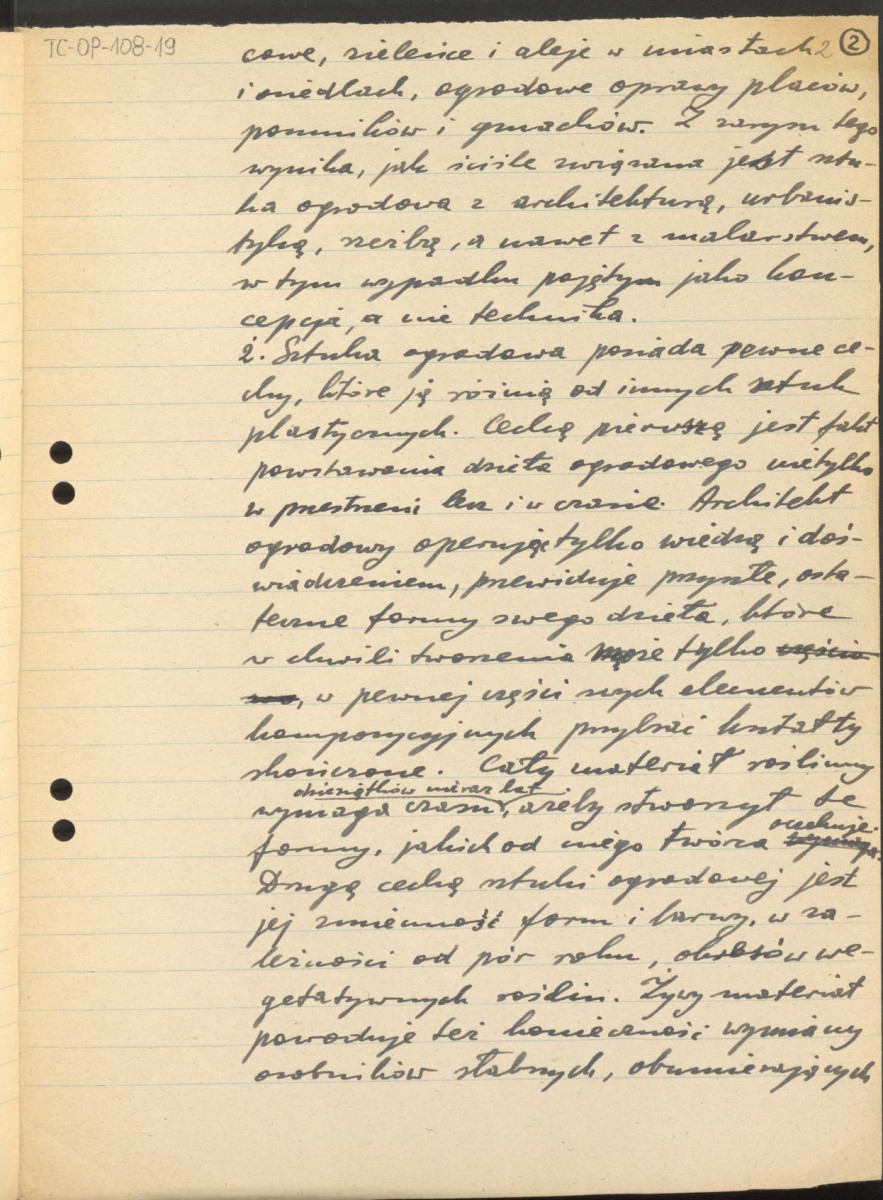 TC-OP-108-19
cowe, zieleńce i aleje w miastach 2 2
i osiedlach, ogrodowe oprawy placów,
pomników i gmachów. Z zarysu tego
wynika, jak ściśle związana jest sztu-
ka ogrodowa z architekturą, urbanis-
tyką, rzeźbą, a nawet z malarstwem,
w tym wypadku pojętym jako kon-
cepcja, a nie technika.
2. Sztuka ogrodowa posiada pewne ce-
chy, które ją różnią od innych sztuk
plastycznych. Cechą pierwszą jest fakt
powstawania dzieła ogrodowego nietylko
w przestrzeni lecz i w czasie. Architekt
ogrodowy operując tylko wiedzą i doś-
wiadczeniem, przewiduje przyszłe, osta-
teczne formy swego dzieła, które
w chwili tworzenia może tylko częścio-
wo, w pewnej części swych elementów
kompozycyjnych przybrać kształty
skończone. Cały materiał roślinny
dziesiątków nieraz lat
wymaga czasu, ażeby stworzył te
oczekuje.
formy, jakich od niego twórca wymaga.
Drugą cechą sztuki ogrodowej jest
jej zmienność form i barwy, w za-
leżności od pór roku, okresów we-
getatywnych roślin. Żywy materiał
powoduje też konieczność wymiany
osobników słabszych, obumierających